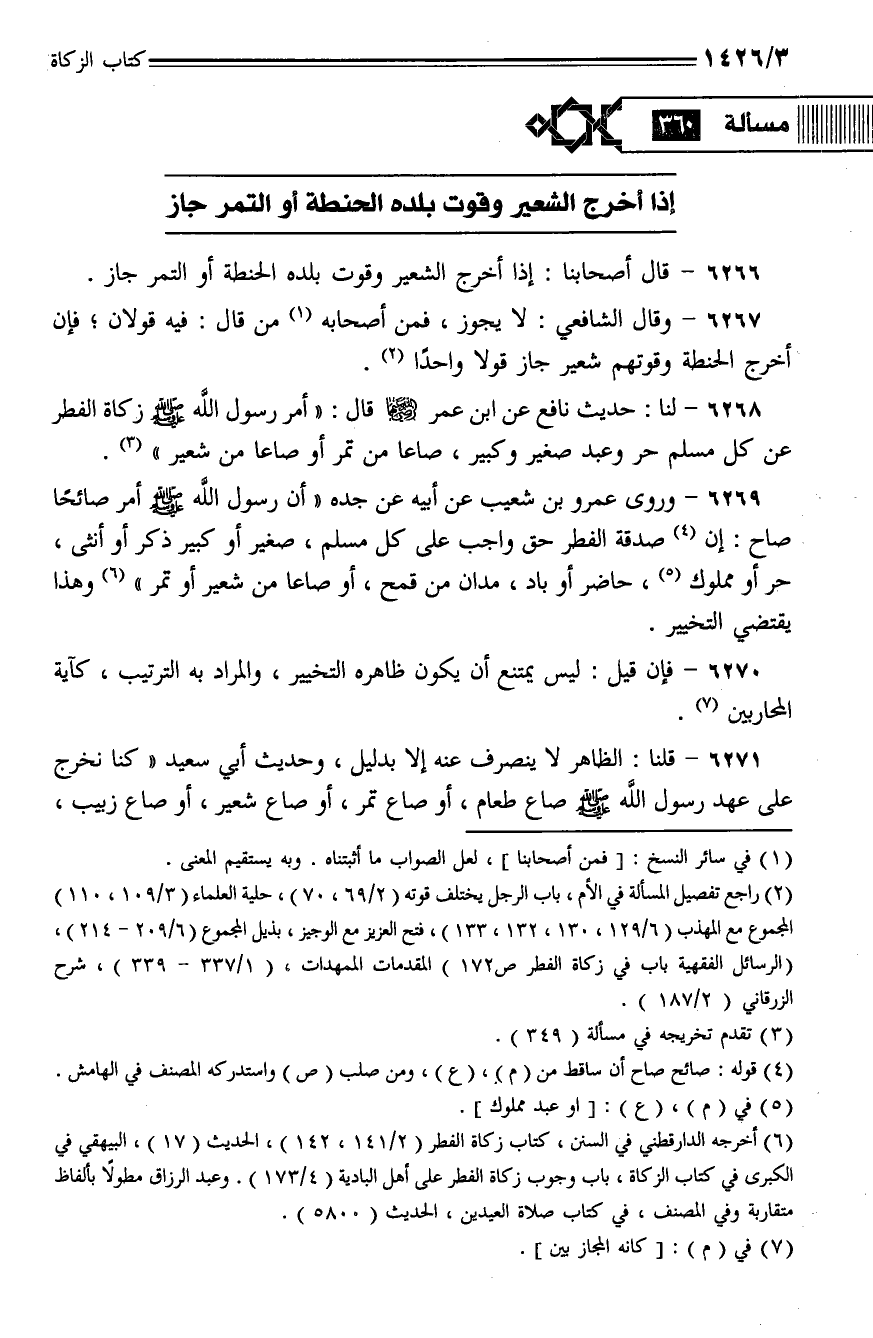 ١٤٢٦/٣ كتاب الزكاة
مسألة ٣٦٠
إذا أخرج الشعير وقوت بلده الحنطة أو التمر جاز
٦٢٦٦ - قال أصحابنا : إذا أخرج الشعير وقوت بلده الحنطة أو التمر جاز .
٦٢٦٧ - وقال الشافعي : لا يجوز ، فمن أصحابه (١) من قال : فيه قولان ؛ فإن
أخرج الحنطة وقوتهم شعير جاز قولا واحدًا (٢) .
٦٢٦٨ - لنا : حديث نافع عن ابن عمر قال : « أمر رسول اللَّه ﷺ زكاة الفطر
عن كل مسلم حر وعبد صغير وكبير ، صاعا من تمر أو صاعا من شعير » (٣) .
٦٢٦٩ - وروى عمرو بن شعيب عن أبيه عن جده « أن رسول اللَّه ﷺ أمر صائحًا
صاح : إن (٤) صدقة الفطر حق واجب على كل مسلم ، صغير أو كبير ذكر أو أنثى ،
حر أو مملوك (٥) ، حاضر أو باد ، مدان من قمح ، أو صاعا من شعير أو تمر » (٦) وهذا
يقتضي التخيير .
٦٢٧٠ - فإن قيل : ليس يمتنع أن يكون ظاهره التخيير ، والمراد به الترتيب ، كآية
المحاربين (٧) .
٦٢٧١ - قلنا : الظاهر لا ينصرف عنه إلا بدليل ، وحديث أبي سعيد « كنا نخرج
على عهد رسول اللَّه ﷺ صاع طعام ، أو صاع تمر ، أو صاع شعير ، أو صاع زبيب ،
(١) في سائر النسخ : [ فمن أصحابنا ] ، لعل الصواب ما أثبتناه . وبه يستقيم المعنى .
(٢) راجع تفصيل المسألة في الأم ، باب الرجل يختلف قوته ( ٦٩/٢ ، ٧٠ ) ، حلية العلماء ( ١٠٩/٣ ، ١١٠ )
المجموع مع المهذب ( ١٢٩/٦ ، ١٣٠ ، ١٣٢ ، ١٣٣ ) ، فتح العزيز مع الوجيز ، بذيل المجموع ( ٢٠٩/٦ - ٢١٤ ) ،
( الرسائل الفقهية باب في زكاة الفطر ص١٧٢ ) المقدمات الممهدات ، ( ٣٣٧/١ - ٣٣٩ ) ، شرح
الزرقاني ( ١٨٧/٢ ) .
(٣) تقدم تخريجه في مسألة ( ٣٤٩ ) .
(٤) قوله : صائح صاح أن ساقط من ( م ) ، ( ع ) ، ومن صلب ( ص ) واستدركه المصنف في الهامش .
(٥) في ( م ) ، ( ع ) : [ او عبد مملوك ] .
(٦) أخرجه الدارقطني في السنن ، كتاب زكاة الفطر ( ١٤١/٢ ، ١٤٢ ) ، الحديث ( ١٧ ) ، البيهقي في
الكبرى في كتاب الزكاة ، باب وجوب زكاة الفطر على أهل البادية ( ١٧٣/٤ ) . وعبد الرزاق مطولًا بألفاظ
متقاربة وفي المصنف ، في كتاب صلاة العيدين ، الحديث ( ٥٨٠٠ ) .
(٧) في ( م ) : [ كانه المجاز بين ] .